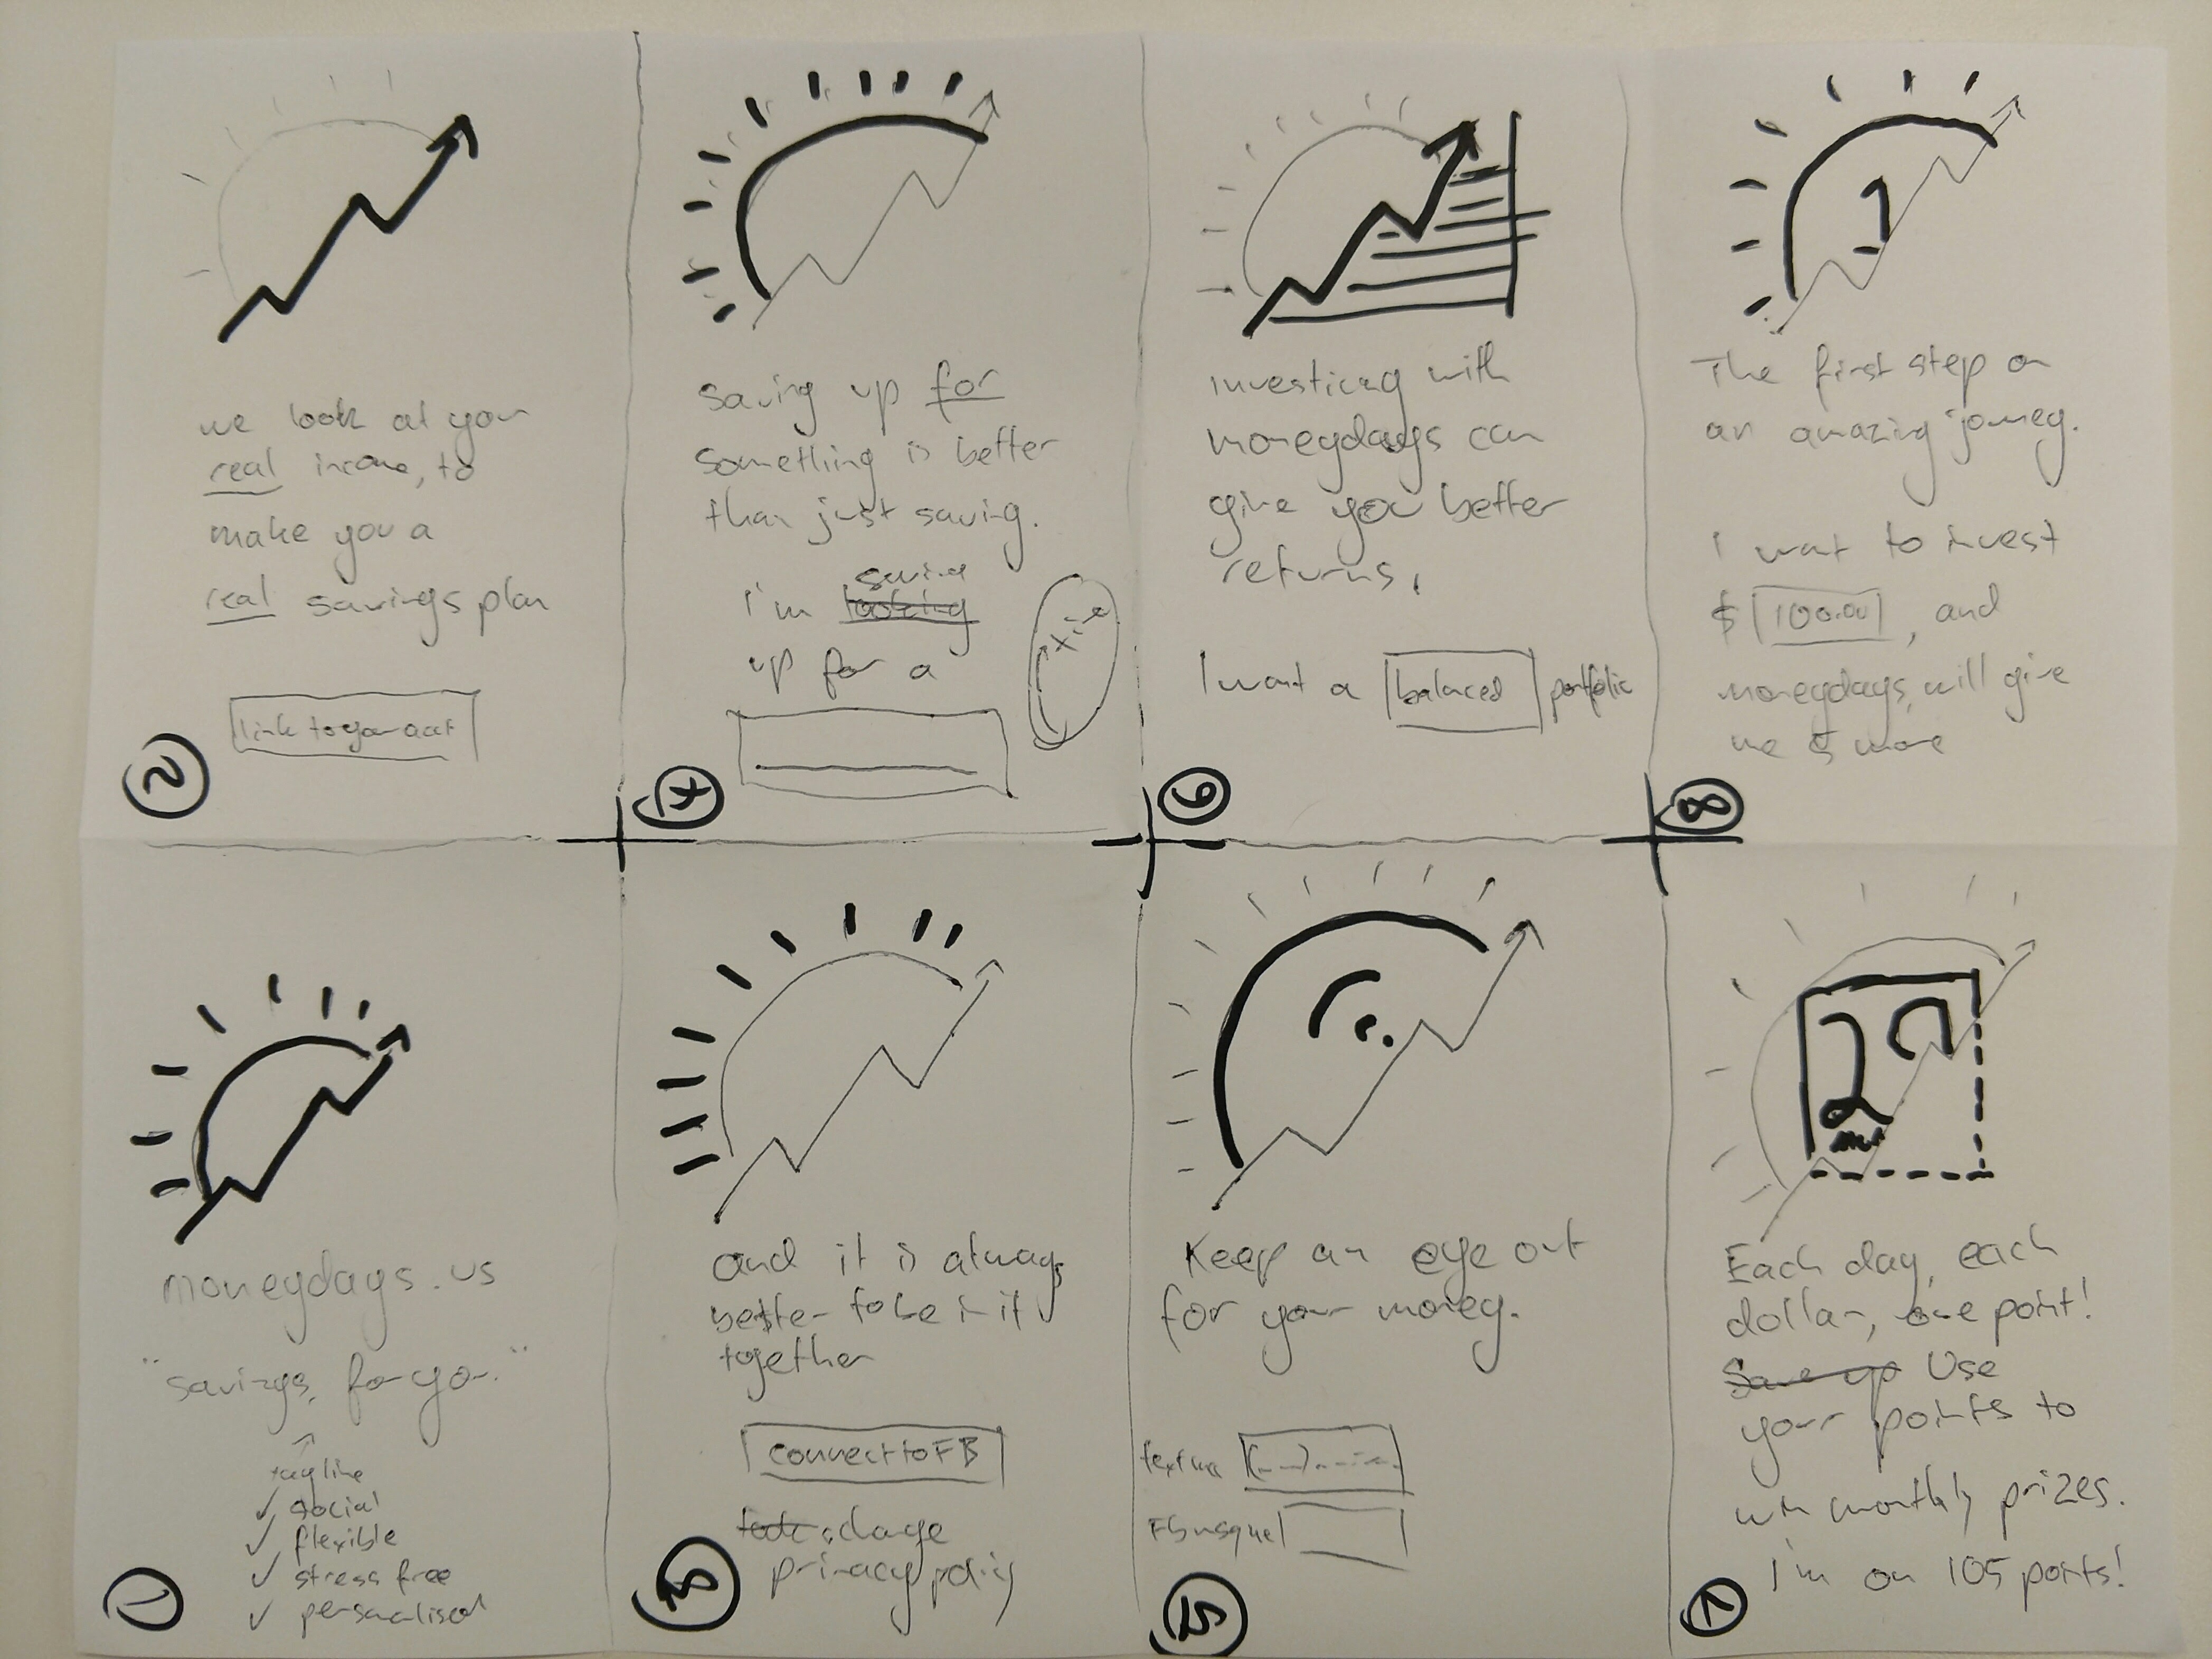 we look at your
real income, to
make you a
real savings plan
link to your acct
2
Saving up for
something is better
than just saving.
saving
I'm looking
up for a
4
Investing with
moneydays can
give you better
returns.
I want a balanced portfolio
6
1
The first step on
an amazing journey.
I want to invest
$ 100.00, and
moneydays will give
me & more
8
moneydays.us
"savings, for you."
tagline
✓ social
✓ flexible
✓ stress free
✓ personalised
1
and it is always
better to be in it
together
connect to FB
change
privacy policy
3
Keep an eye out
for your money.
text me
5
Each day, each
dollar, one point!
Save up Use
your points to
win monthly prizes.
I'm on 105 points!
7